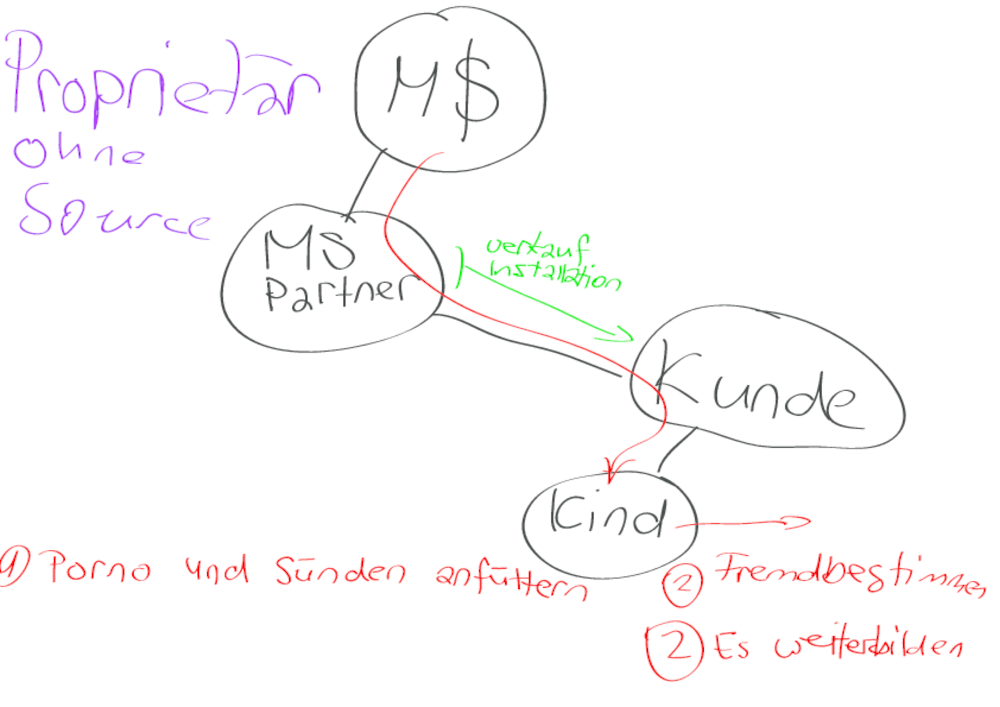 Proprietär
ohne
Source
M$
MS
Partner
verkauf
installation
Kunde
Kind
1 Porno und Sünden anfüttern
2 Fremdbestimmen
2 Es weiterbilden